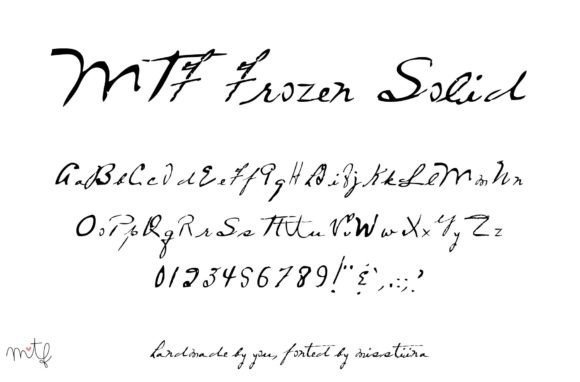 MTF Frozen Solid
AaBbCcDdEeFfGgHhIiJjKkLlMmNn
OoPpQqRrSsTtUuVvWwXxYyZz
0123456789!"&',.:;?
mtf
handmade by you, fonted by misstiina